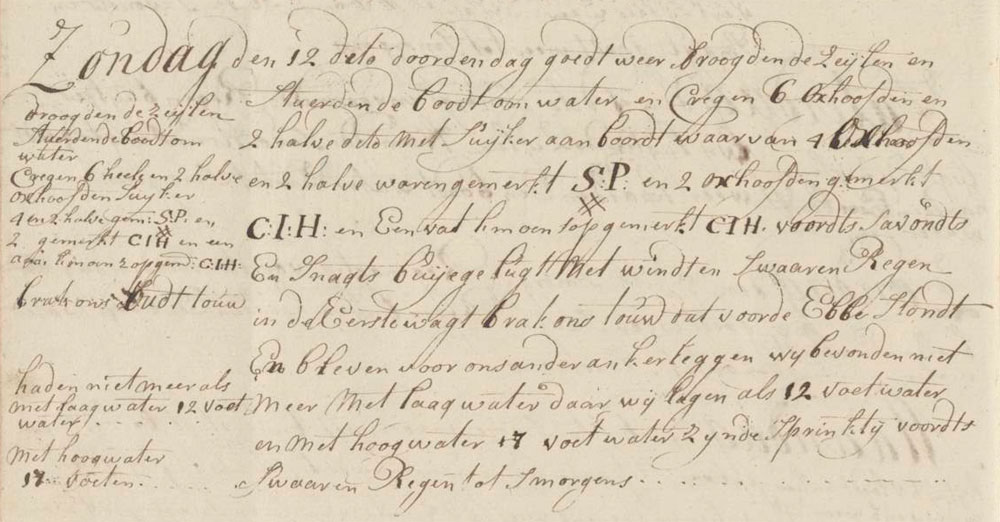 Zondag den 12 deto doordendag goedt weer droogden de Zeijlen en
Stuerden de boodt om water en Cregen 6 Oxhoofden en
2 halve deto Met Suijker aan boordt waar van 4 Oxhoofden
en 2 halve waren gemerkt S:P: en 2 oxhoofden gemerkt
C:I:H: en Een vat limoensop gemerkt CIH. voordts savondts
En Snagts buijege lugt Met windt en Swaaren Regen
in de Eerste wagt brak ons touw dat voor de Ebbe Stondt
En bleven voor ons ander anker leggen wij bevonden niet
Meer Met laag water daar wij lagen als 12 voet water
en Met hoog water 17 voet water Zynde Sprinktij voordts
Swaaren Regen tot Smorgens
droogden de zeijlen
Stuerden de boodt om
water
Cregen 6 heele en 2 halve
oxhoofden Suyker
4 en 2 halve gem: S:P: en
2 gemerkt CIH en een
limoenzop gem: C:I:H:
brak ons touw
haden niet meer als
met laag water 12 voet
water
Met hoog water
17 voeten